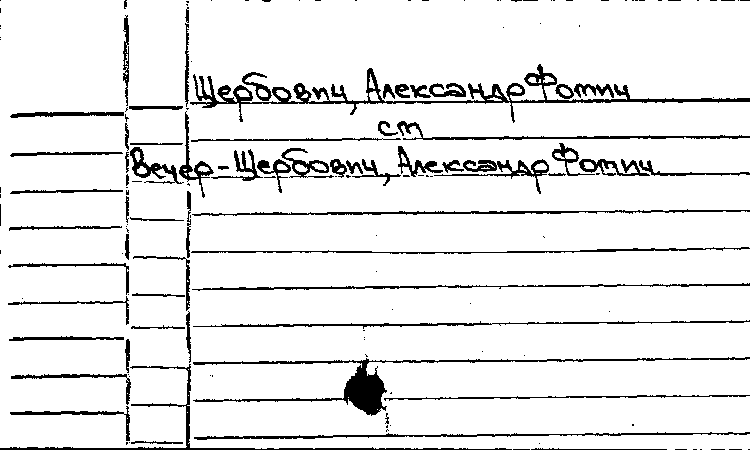 Щербович, Александр Фомич
см
Вечер-Щербович, Александр Фомич